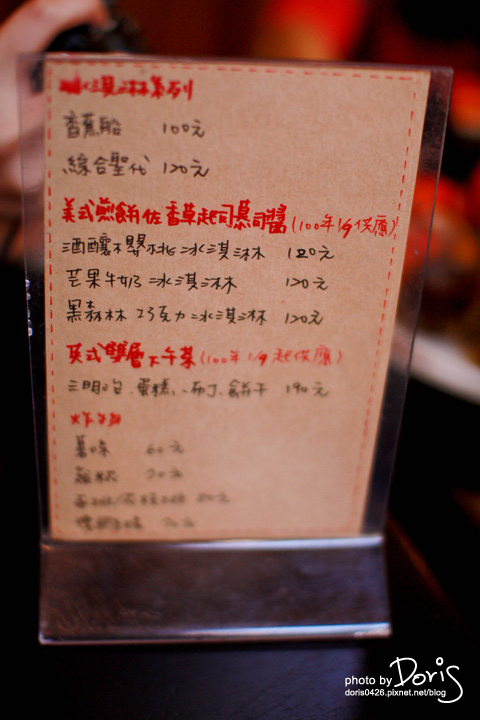 冰淇淋系列
香蕉船 100元
綜合聖代 120元
美式煎餅佐香草起司慕司醬(100年1/9供應)
酒釀櫻桃冰淇淋 120元
芒果牛奶冰淇淋 120元
黑森林巧克力冰淇淋 120元
英式雙層下午茶(100年1/9起供應)
三明治、蛋糕、布丁、餅干 190元
炸物
薯條 60元
70元
photo by Doris
doris0426.pixnet.net/blog